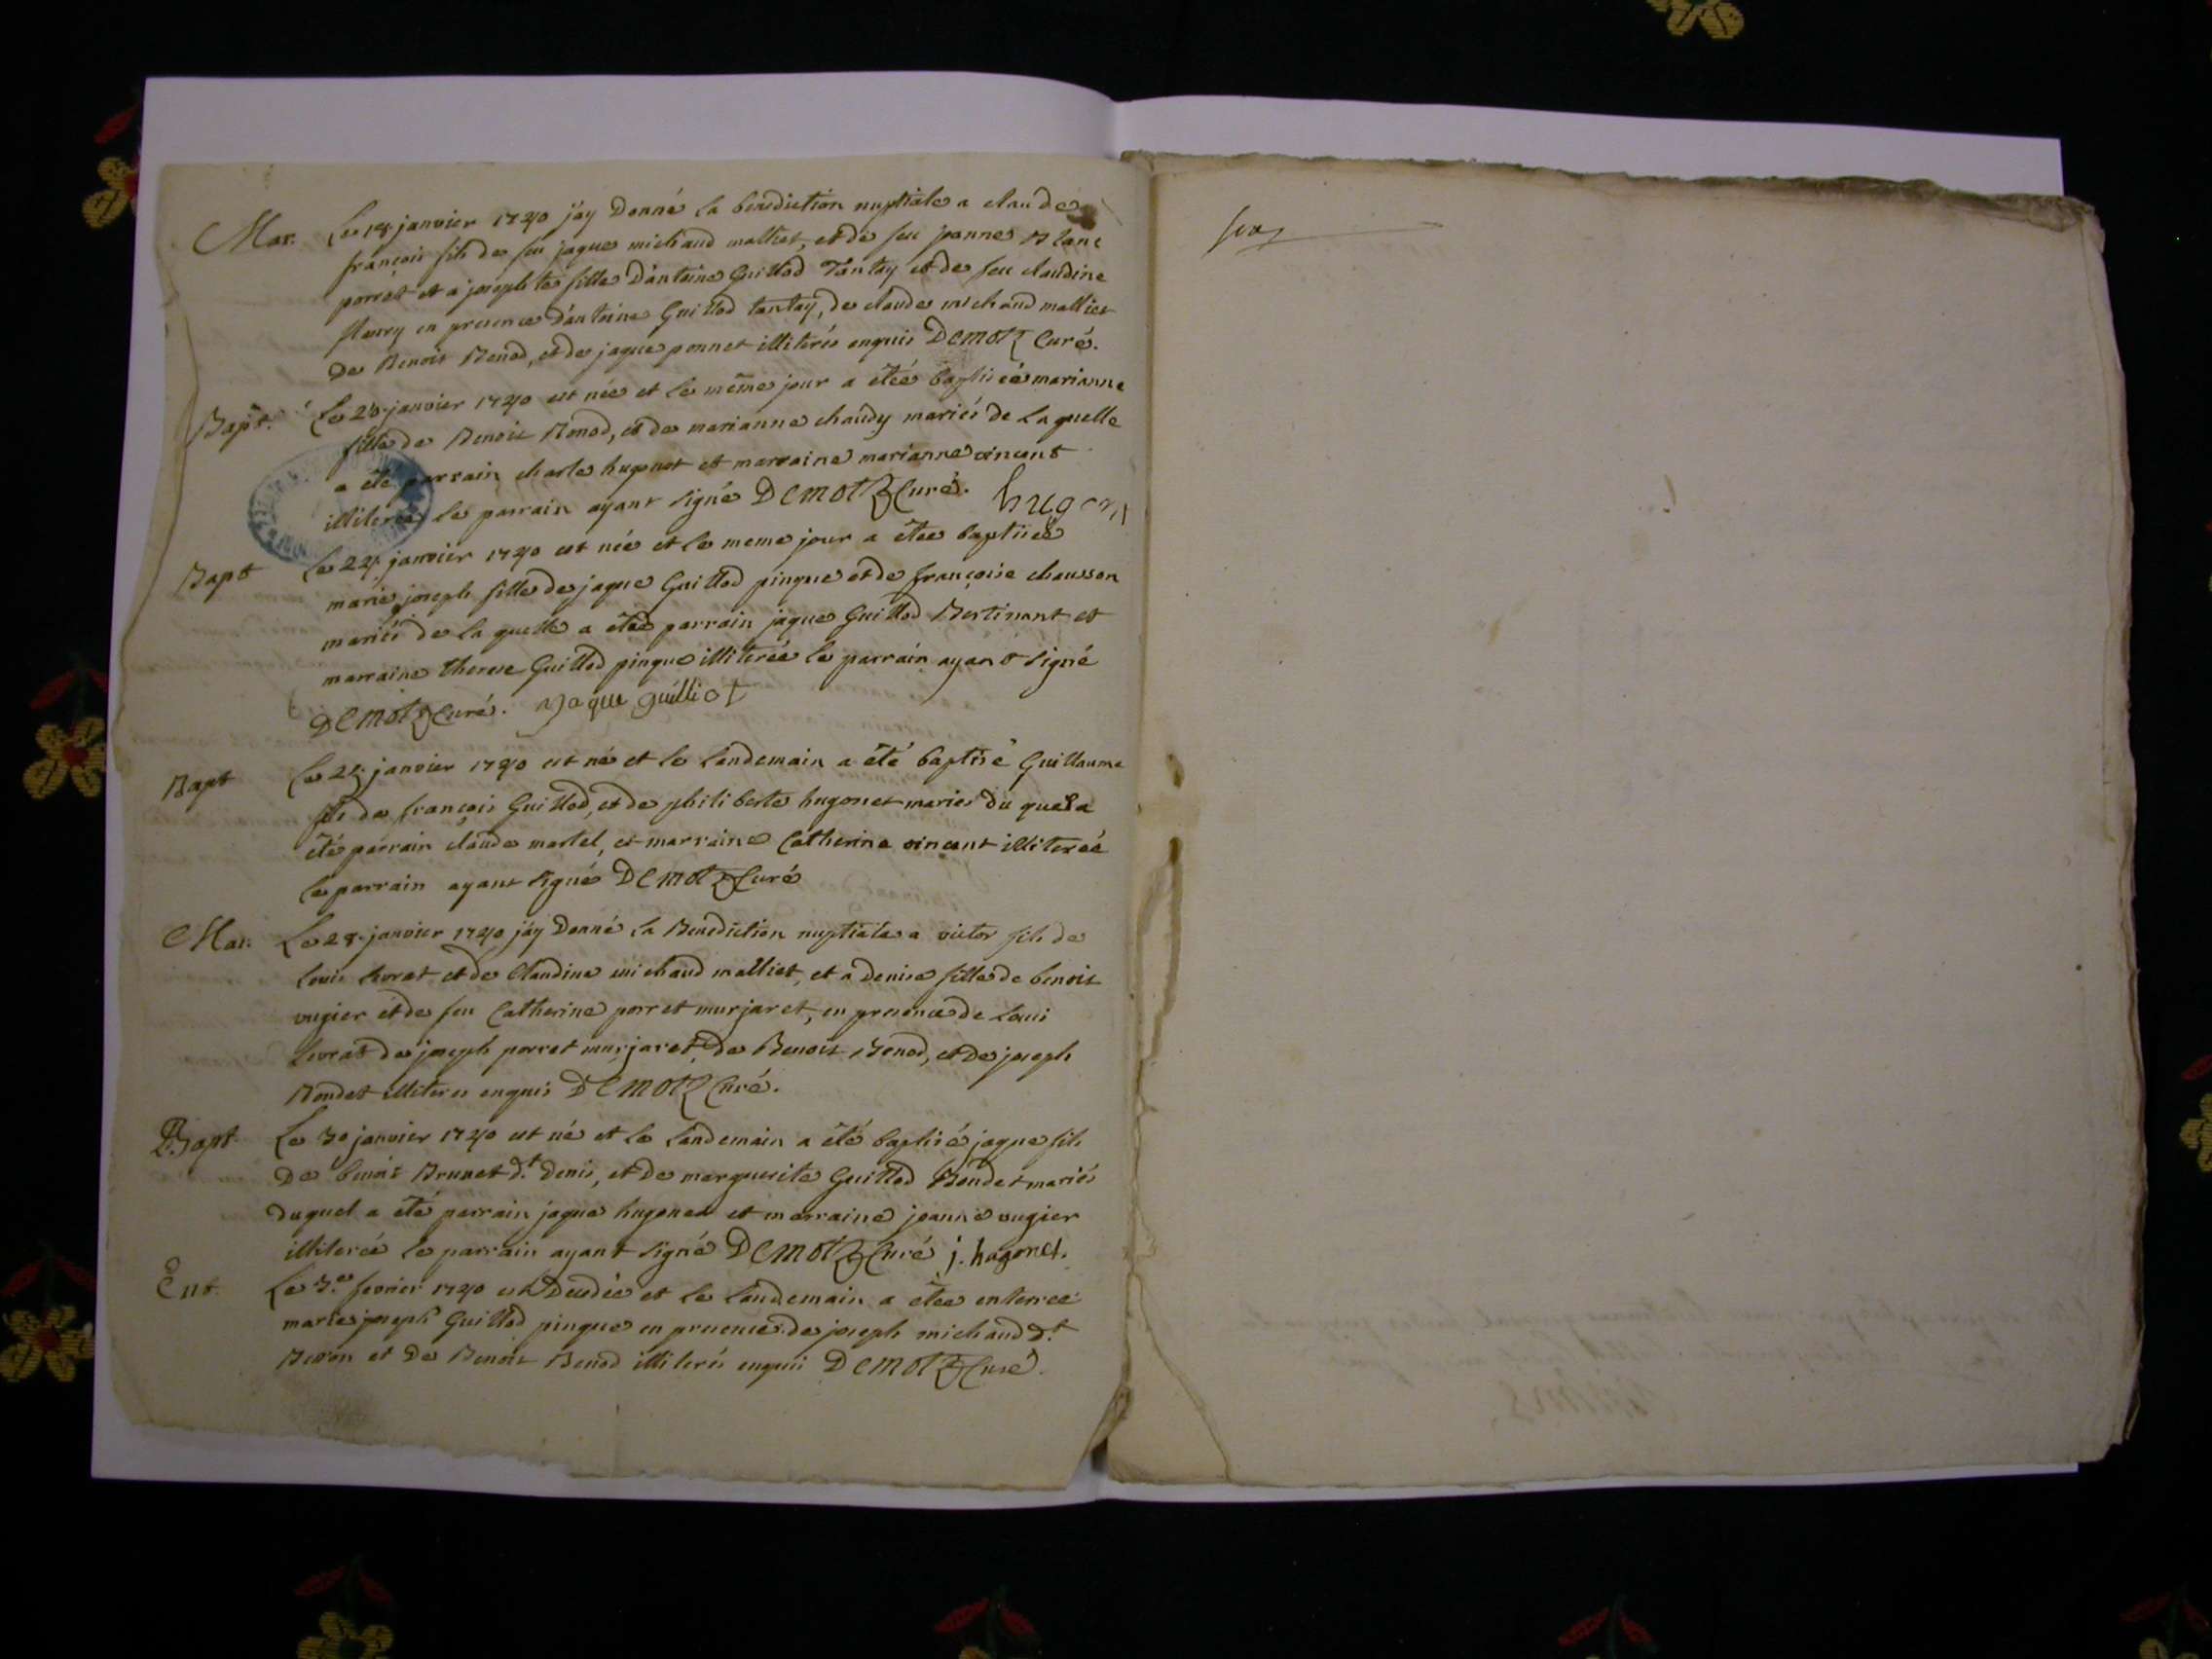 Mar. Le 18 janvier 1740 j'ay Donné la bénédiction nuptiale a claude
françois fils de feu jaque michaud malliet, et de feu jeanne Blanc
porret et a josephte fille D'antoine Guillod Tantay et de feu claudine
fleury en presence d'antoine Guillod tantay, de claude michaud malliet
de Benoit Benod, et de jaque ponnet illiterés enquis DEMOTZ Curé.
Bapt. Le janvier 1740 est née et le même jour a êteé baptiseé marianne
fille de Benoit Benod, et de marianne chaudy mariés de Laquelle
a été parrain charle hugonet et marraine marianne vincent
illitereé le parrain ayant signé DEMOTZ Curé. hugon
Bapt Le janvier 1740 est née et le meme jour a êtee baptiseé
marie joseph fille de jaque Guillod pingue et de françoise chausson
mariés de la quelle a êteé parrain jaque Guillod Bertinant et
marraine therese Guillod pingue illitereé le parrain ayant signé
DEMOTZ Curé. Jaque guilliot
Bapt Le janvier 1740 est né et le landemain a été baptisé Guillaume
fils de françois Guillod, et de philiberte hugonet mariés du quel a
été parrain claude martel, et marraine Catherine vincent illitereé
le parrain ayant signé DEMOTZ Curé
Mar. Le 28 janvier 1740 j'ay Donné la Benediction nuptiale a victor fils de
Louis livrat et de Claudine michaud malliet, et a denise fille de benoit
vugier et de feu Catherine porret murjaret, en presence de Loui
livrat de joseph porret murjaret, de Benoit Benod, et de joseph
Bondet illiteres enquis DEMOTZ Curé.
Bapt. Le 30 janvier 1740 est né et le landemain a été baptisé jaque fils
De benoit Brunet d.t denis, et de marguerite Guillod Bondet mariés
duquel a été parrain jaque hugonet et marraine jeanne vugier
illitereé le parrain ayant signé DEMOTZ Curé j. hugonet.
Ent. Le fevrier 1740 est Decedeé et le landemain a êtee enterreé
marie joseph Guillod pingue en presence de joseph michaud d.t
et de Benoit Benod illiterés enquis DEMOTZ Curé.